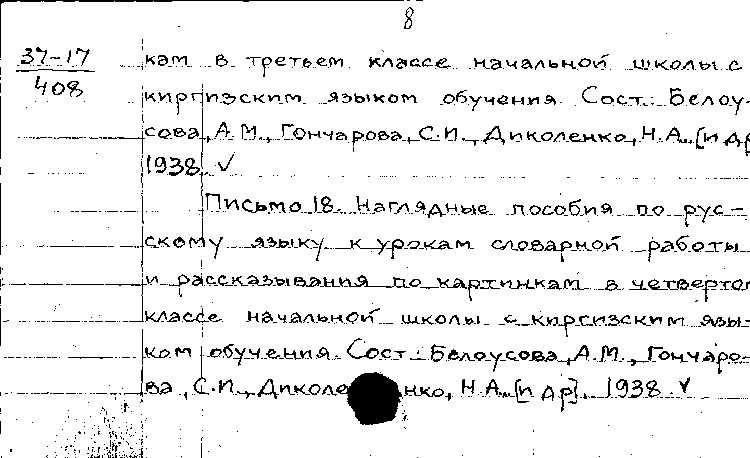 8
37-17
408
кам в третьем классе начальной школы с
киргизским языком обучения. Сост.: Белоу-
сова, А.М., Гончарова, С.И., Диколенко, Н.А., [и др
1938. ✓
Письмо 18. Наглядные пособия по рус-
скому языку к урокам словарной работы
и рассказывания по картинкам в четвертом
классе начальной школы с киргизским язы-
ком обучения. Сост.: Белоусова, А.М., Гончаро-
ва, С.И., Диколенко, Н.А. [и др]. 1938. ✓